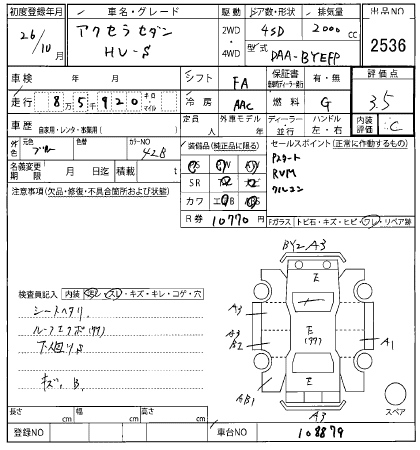 初度登録年月 車名・グレード 駆動 ドア数・形状 排気量 出品NO
26/10月 アクセラセダン HV-S 2WD・4WD 4SD 2000cc 2536
型式 DAA-BYEFP
車検 年 月 シフト FA 保証書 有・無 評価点
走行 8万5千920 キロ・マイル 冷房 AAC 燃料 G 3.5
車歴 自家用・レンタ・事業用( ) 定員 人 外車モデル 年 ディーラー 並行 ハンドル 左・右 内装評価 C
外色 元色 ブルー 色替 カラーNO 42B 装備品(純正品に限る) セールスポイント(正常に作動するもの)
名義変更期限 月 日迄 積載 t PS AW Pスタート
SR RVM
注意事項(欠品・修復・不具合箇所および状態) カワ クルコン
R券 10770円 Fガラス トビ石・キズ・ヒビ・ワレ・リペア跡
BY2 A3
E
検査員記入 内装 コゲ・穴 A3
シートヘタリ A3 B2 E A1
キズ, B. E AB1
A3 スペア
長さ cm 幅 cm 高さ cm
登録NO 車台NO 108879